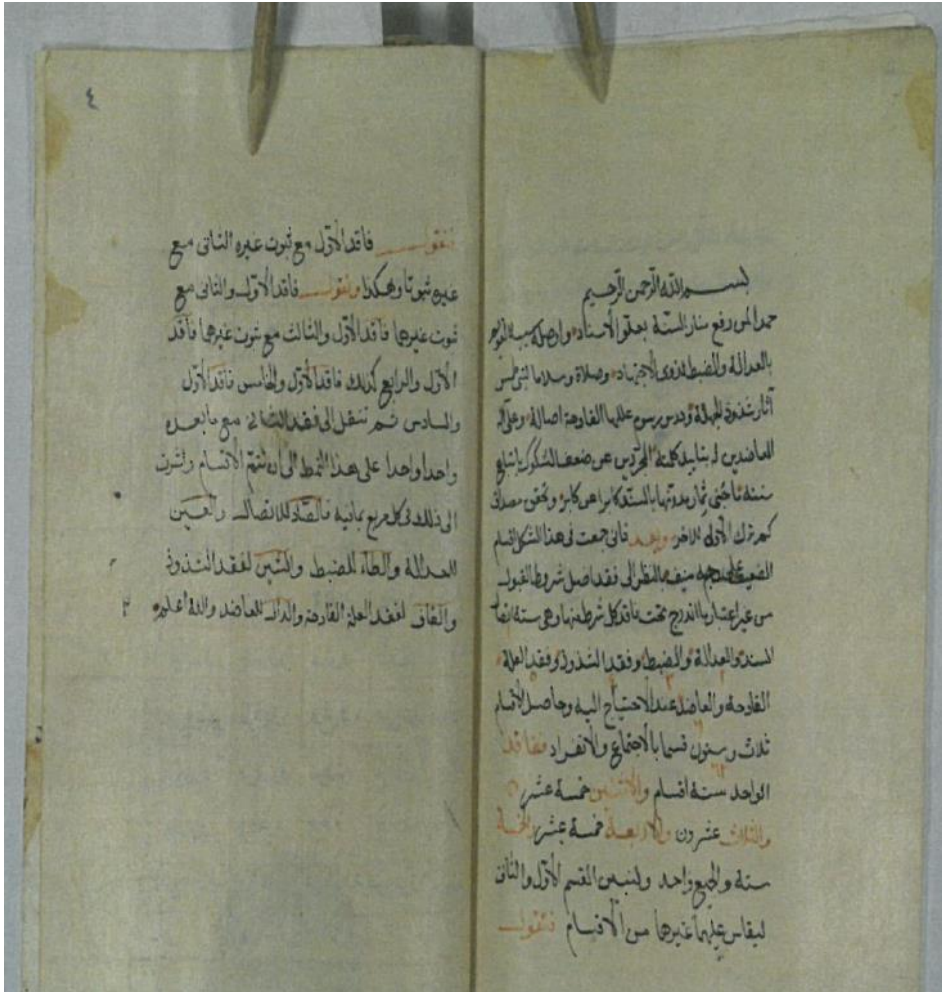 بسم الله الرحمن الرحيم
حمدا لمن رفع منار السنة بعلو الاسناد
بالعدالة والضبط لذوى الاجتهاد وصلاة وسلاما لنبي طمس
آثار شذوذ الجهالة ودرس رسوم عللها القادحة اصالة وعلى آله
العاضدين له بتاييد كلمته المجردين عن ضعف الشكوك باتباع
سنته ما جنى ثمار بدوتها بالسند كابرا عن كابر وتحقق مصداق
كم ترك الأول للاخر وبعد فانى جمعت فى هذا الشكل اقسام
الضعيف بالنظر الى فقد اصل شروط القبول
من غير اعتبار ما اندرج تحت فاقد كل شرط منها وهى ستة اتصال
السند والعدالة والضبط وفقد الشذوذ وفقد العلة
القادحة والعاضد عند الاحتياج اليه وحاصل الاقسام
ثلاث وستون قسما بالاجتماع والانفراد ففاقد
الواحد ستة اقسام والاثنين خمسة عشر
والثلاث عشرون والاربعة خمسة عشر والخمسة
ستة والجميع واحد ولنبين القسم الأول والثانى
ليقاس عليهما غيرها من الأقسام فنقول
فنقول فاقد الأول مع ثبوت غيره الثانى مع
غيره ثبوتا وهكذا ونقول فاقد الأول والثانى مع
ثبوت غيرها فاقد الأول والثالث مع ثبوت غيرها فاقد
الأول والرابع كذلك فاقد الأول والخامس فاقد الأول
والسادس ثم تنتقل الى فقد الثانى مع ما بعده
واحدا واحدا على هذا النمط الى ان تتم الاقسام واشرت
الى ذلك فى كل مربع بمانيه فالصاد للاتصال والعين
للعدالة والطاء للضبط والشين لفقد الشذوذ
والقاف لفقد العلة القادحة والدال للعاضد والله اعلم
٤